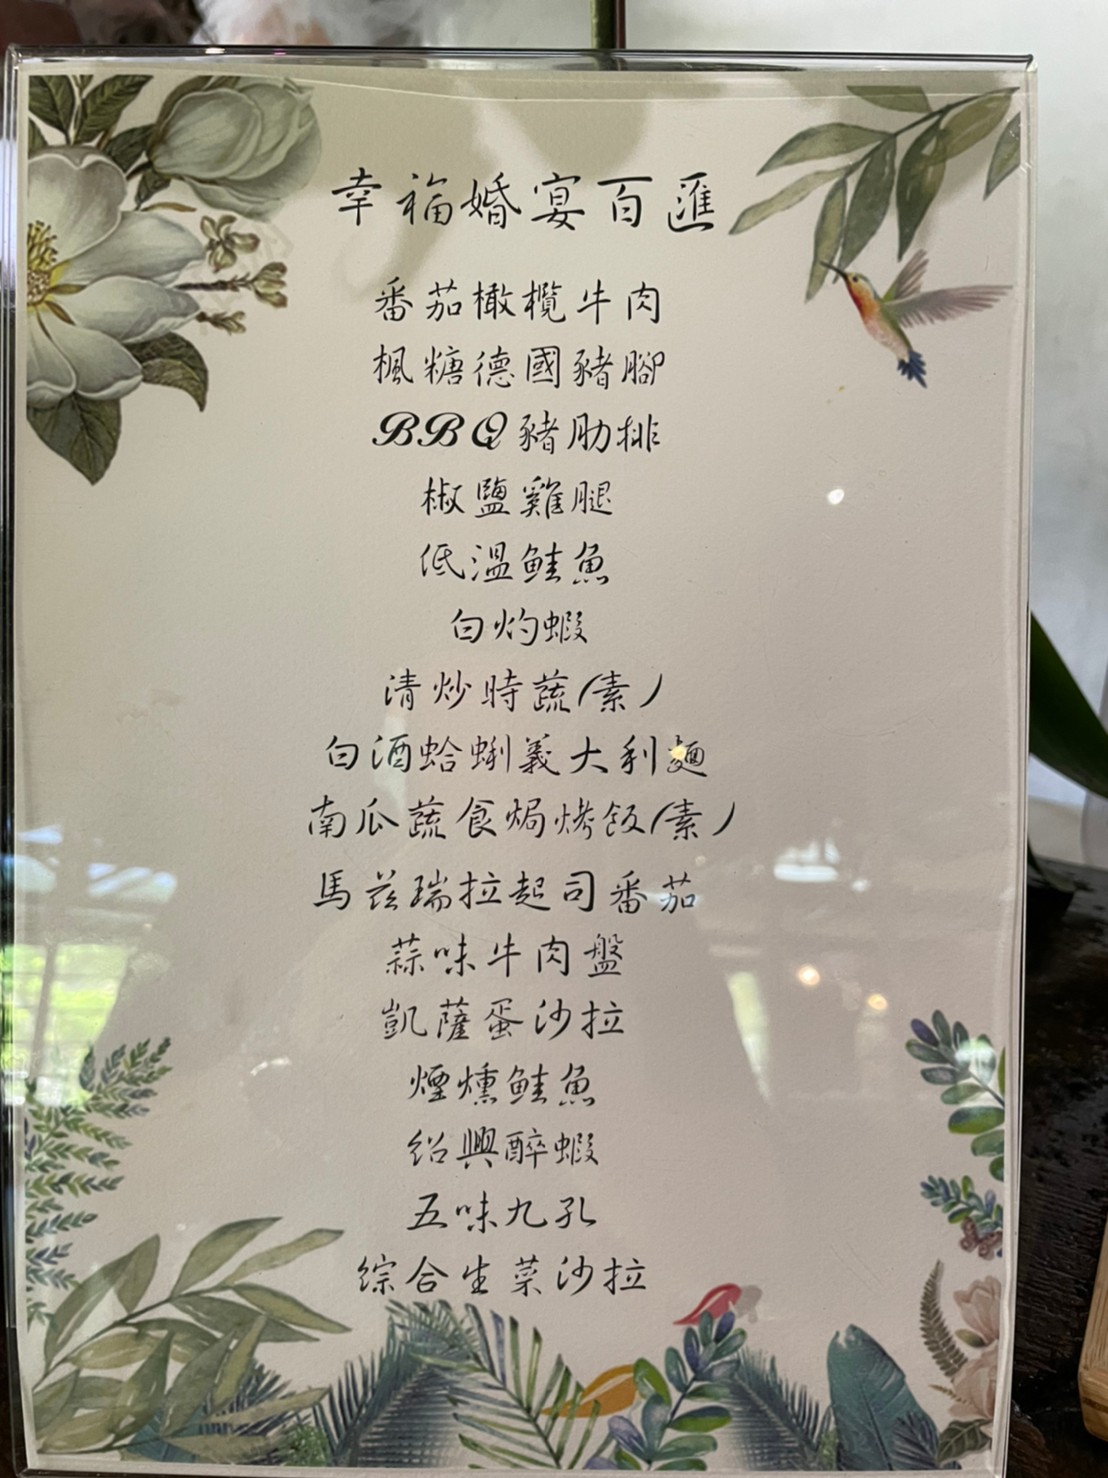 幸福婚宴百匯
番茄橄欖牛肉
楓糖德國豬腳
BBQ豬肋排
椒鹽雞腿
低溫鮭魚
白灼蝦
清炒時蔬(素)
白酒蛤蜊義大利麵
南瓜蔬食焗烤飯(素)
馬茲瑞拉起司番茄
蒜味牛肉盤
凱薩蛋沙拉
煙燻鮭魚
紹興醉蝦
五味九孔
綜合生菜沙拉